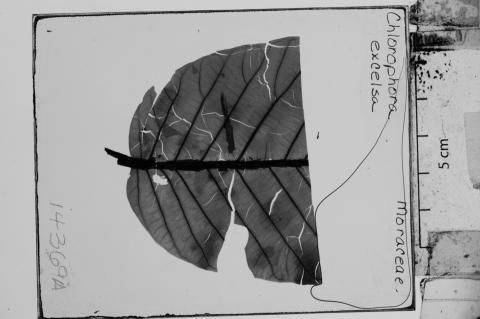 Chlorophora
excelsa
Moraceae.
5cm
14369A